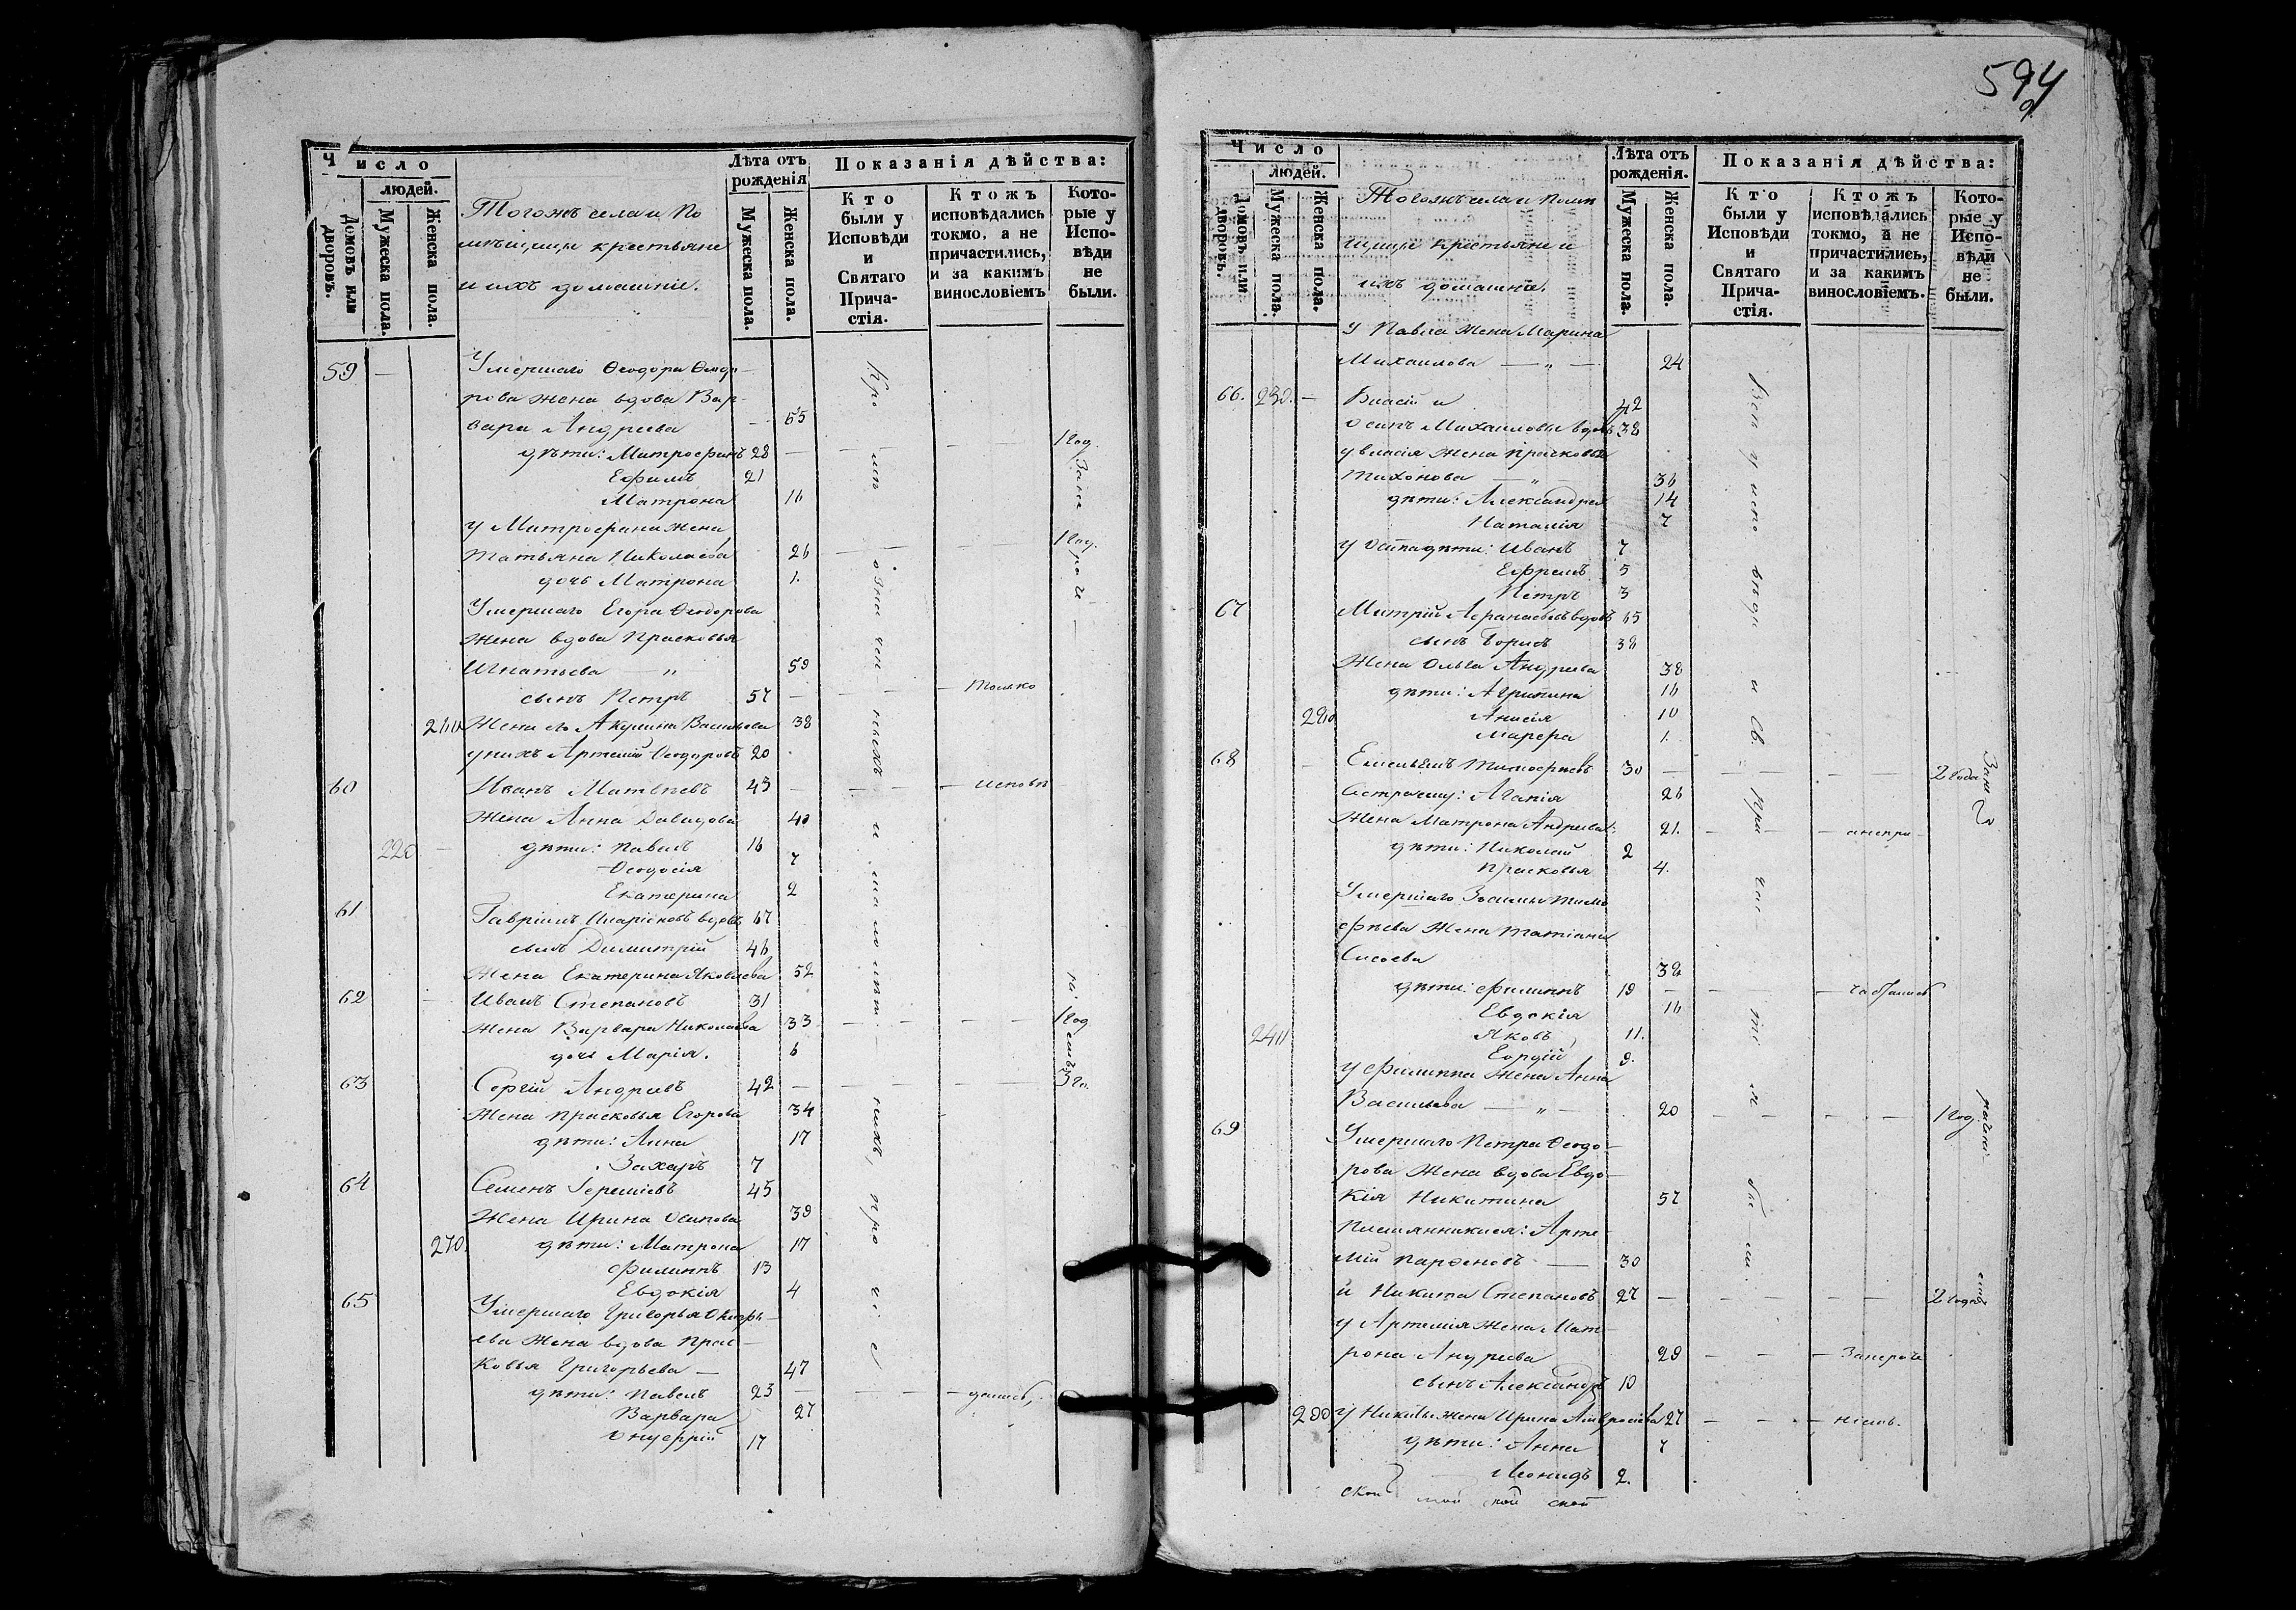 594
Число
людей.
Домовъ или дворовъ.
Мужеска пола.
Женска пола.
Тогожъ села и По
мѣщицы крестьяне
и ихъ домашніе.
Лѣта отъ рожденія
Мужеска пола.
Женска пола.
Показанія дѣйства:
Кто были у Исповѣди и Святаго Причастія.
Ктожъ исповѣдались токмо, а не причастились, и за какимъ винословіемъ
Которые у Исповѣди не были.
59 — Умершаго Ѳеодора Ѳеодо-
рова жена вдова Вар-
вара Андреева — 65
дѣти: Митрофанъ 28 — 1 год.
Ефимъ 21
Матрона 16
у Митрофана жена
Татьяна Николаева 26 — — — 1 год.
дочь Матрона 1.
Умершаго Егора Ѳеодорова
жена вдова Прасковья
Игнатьева — „ 59
сынъ Петръ 57 — — — только
260 Жена его Акулина Васильева 38
у нихъ Артемій Ѳеодоровъ 20
60 Иванъ Матвѣевъ 43 — — — исповѣ
Жена Анна Давидова 40
220 — дѣти: Павелъ 16
Ѳеодосія 7
Екатерина 2
61 Гавріилъ Иларіоновъ вдовъ 67
сынъ Димитрій 46
Жена Екатерина Яковлева 52
62 — Иванъ Степановъ 31
Жена Варвара Николаева 33 — — — — 1 год
дочь Марія. 6
63 Сергій Андреевъ 42 — — — 3 го.
Жена Прасковья Егорова 34
дѣти: Анна 17
Захаръ 7
64 Семенъ Іереміевъ 45
Жена Ирина Осипова 39
270. дѣти: Матрона 17
Филиппъ 13
Евдокія 4
65 Умершаго Григорья
ева жена вдова Прас-
ковья Григорьева — 47
дѣти: Павелъ 23 — — — дались,
Варвара 27
Онуфрій 17
Число
людей.
Домовъ или дворовъ.
Мужеска пола.
Женска пола.
Тогожъ села и Помѣ
щицы крестьяне и
ихъ домашніе.
Лѣта отъ рожденія.
Мужеска пола.
Женска пола.
Показанія дѣйства:
Кто были у Исповѣди и Святаго Причастія.
Ктожъ исповѣдались токмо, а не причастились, и за какимъ винословіемъ.
Которые у Исповѣди не были.
У Павла жена Марина
Михаилова — „ — 24
66. 230. — Власій и 42
Осипъ Михаиловы вдовъ 38
у Власія жена Прасковья
Тихонова — „ 36
дѣти: Александра 14
Наталія 7
у Осипа дѣти: Иванъ 7
Ефремъ 5
Петръ 3
67 Митрій Аѳанасьевъ вдовъ 65
сынъ Борисъ 38
Жена Ольга Андреева 38
дѣти: Агрипина 16
280 Анисія 10
Марѳа 1.
68 — Емельянъ Тимофеевъ 30 — — — — 2 года
Сестра ему: Агапія 26
Жена Матрона Андреева 21. — — —
дѣти: Николай 2
Прасковья 4.
Умершаго Зосимы Тимо
феева жена Татіана
Сисоева 38
дѣти: Филиппъ 19 — — —
Евдокія 16
240 Яковъ 11.
9.
у Филиппа жена Анна
Васильева — „ — 20 — — — — 1 год.
69 Умершаго Петра Ѳеодо-
рова жена вдова Евдо-
кія Никитина 57
племянники ея: Арте-
мій Парѳеновъ — 30
и Никита Степановъ 27 — — — — 2 года
у Артемія жена Мат-
рона Андреева 29 — — —
сынъ Александръ 10
290 у Никиты жена Ирина Амвросіева 27 — — —
дѣти: Анна 7
Леонидъ 2.